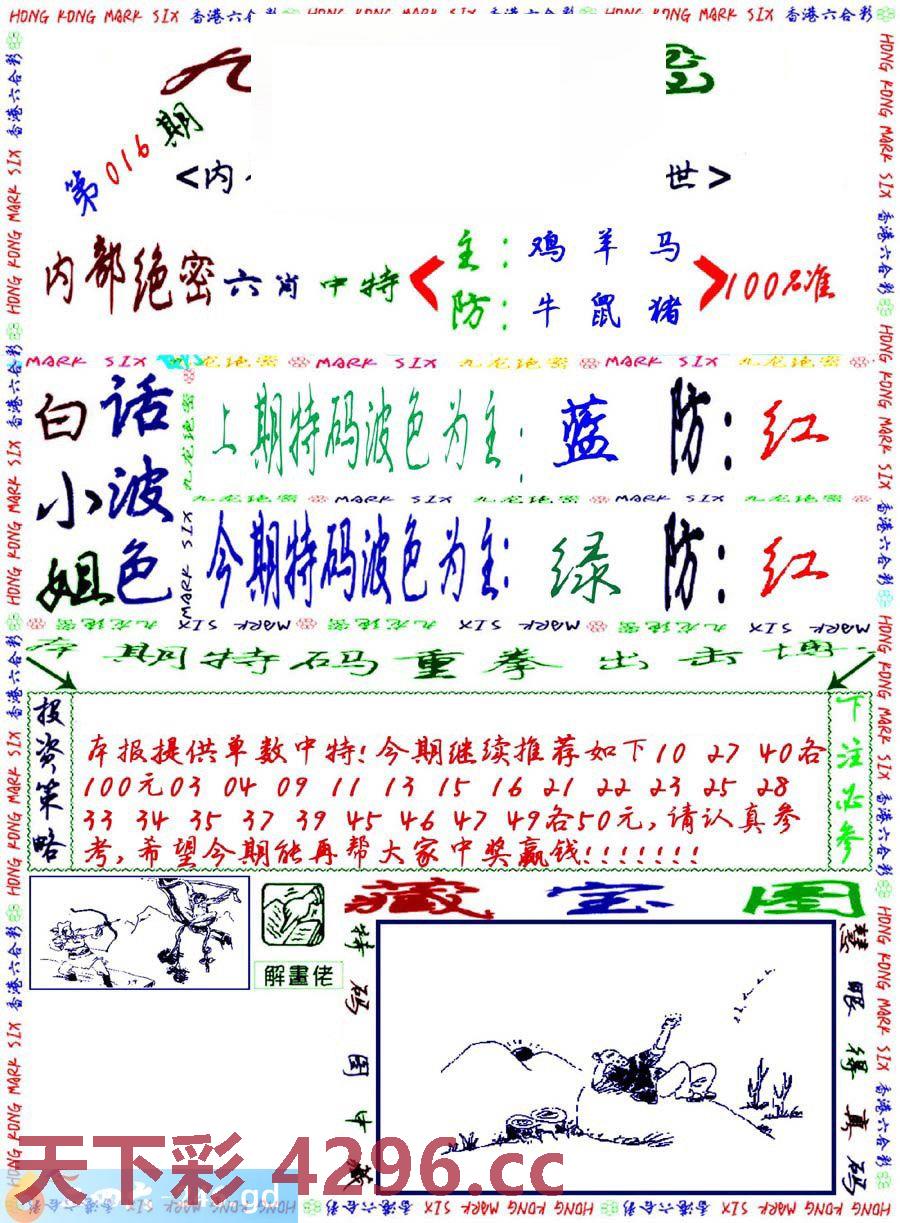 HONG KONG MARK SIX 香港六合彩
第016期
<内
世>
内部绝密六肖中特
主：鸡 羊 马
防：牛 鼠 猪
100名准
MARK SIX 九龙绝密 MARK SIX 九龙绝密 MARK SIX 九龙绝密
白话
小波
姐色
上期特码波色为主：蓝 防：红
九龙绝密 MARK SIX 九龙绝密 MARK SIX 九龙绝密
今期特码波色为主：绿 防：红
期特码重拳出击
投资策略
本报提供单数中特!今期继续推荐如下10 27 40各
100元03 04 09 11 13 15 16 21 22 23 25 28
33 34 35 37 39 45 46 47 49各50元,请认真参
考,希望今期能再帮大家中奖赢钱!!!!!!!
下注必参
解畫佬
藏宝图
特码图中藏
慧眼得真码
天下彩 4296.cc
gd